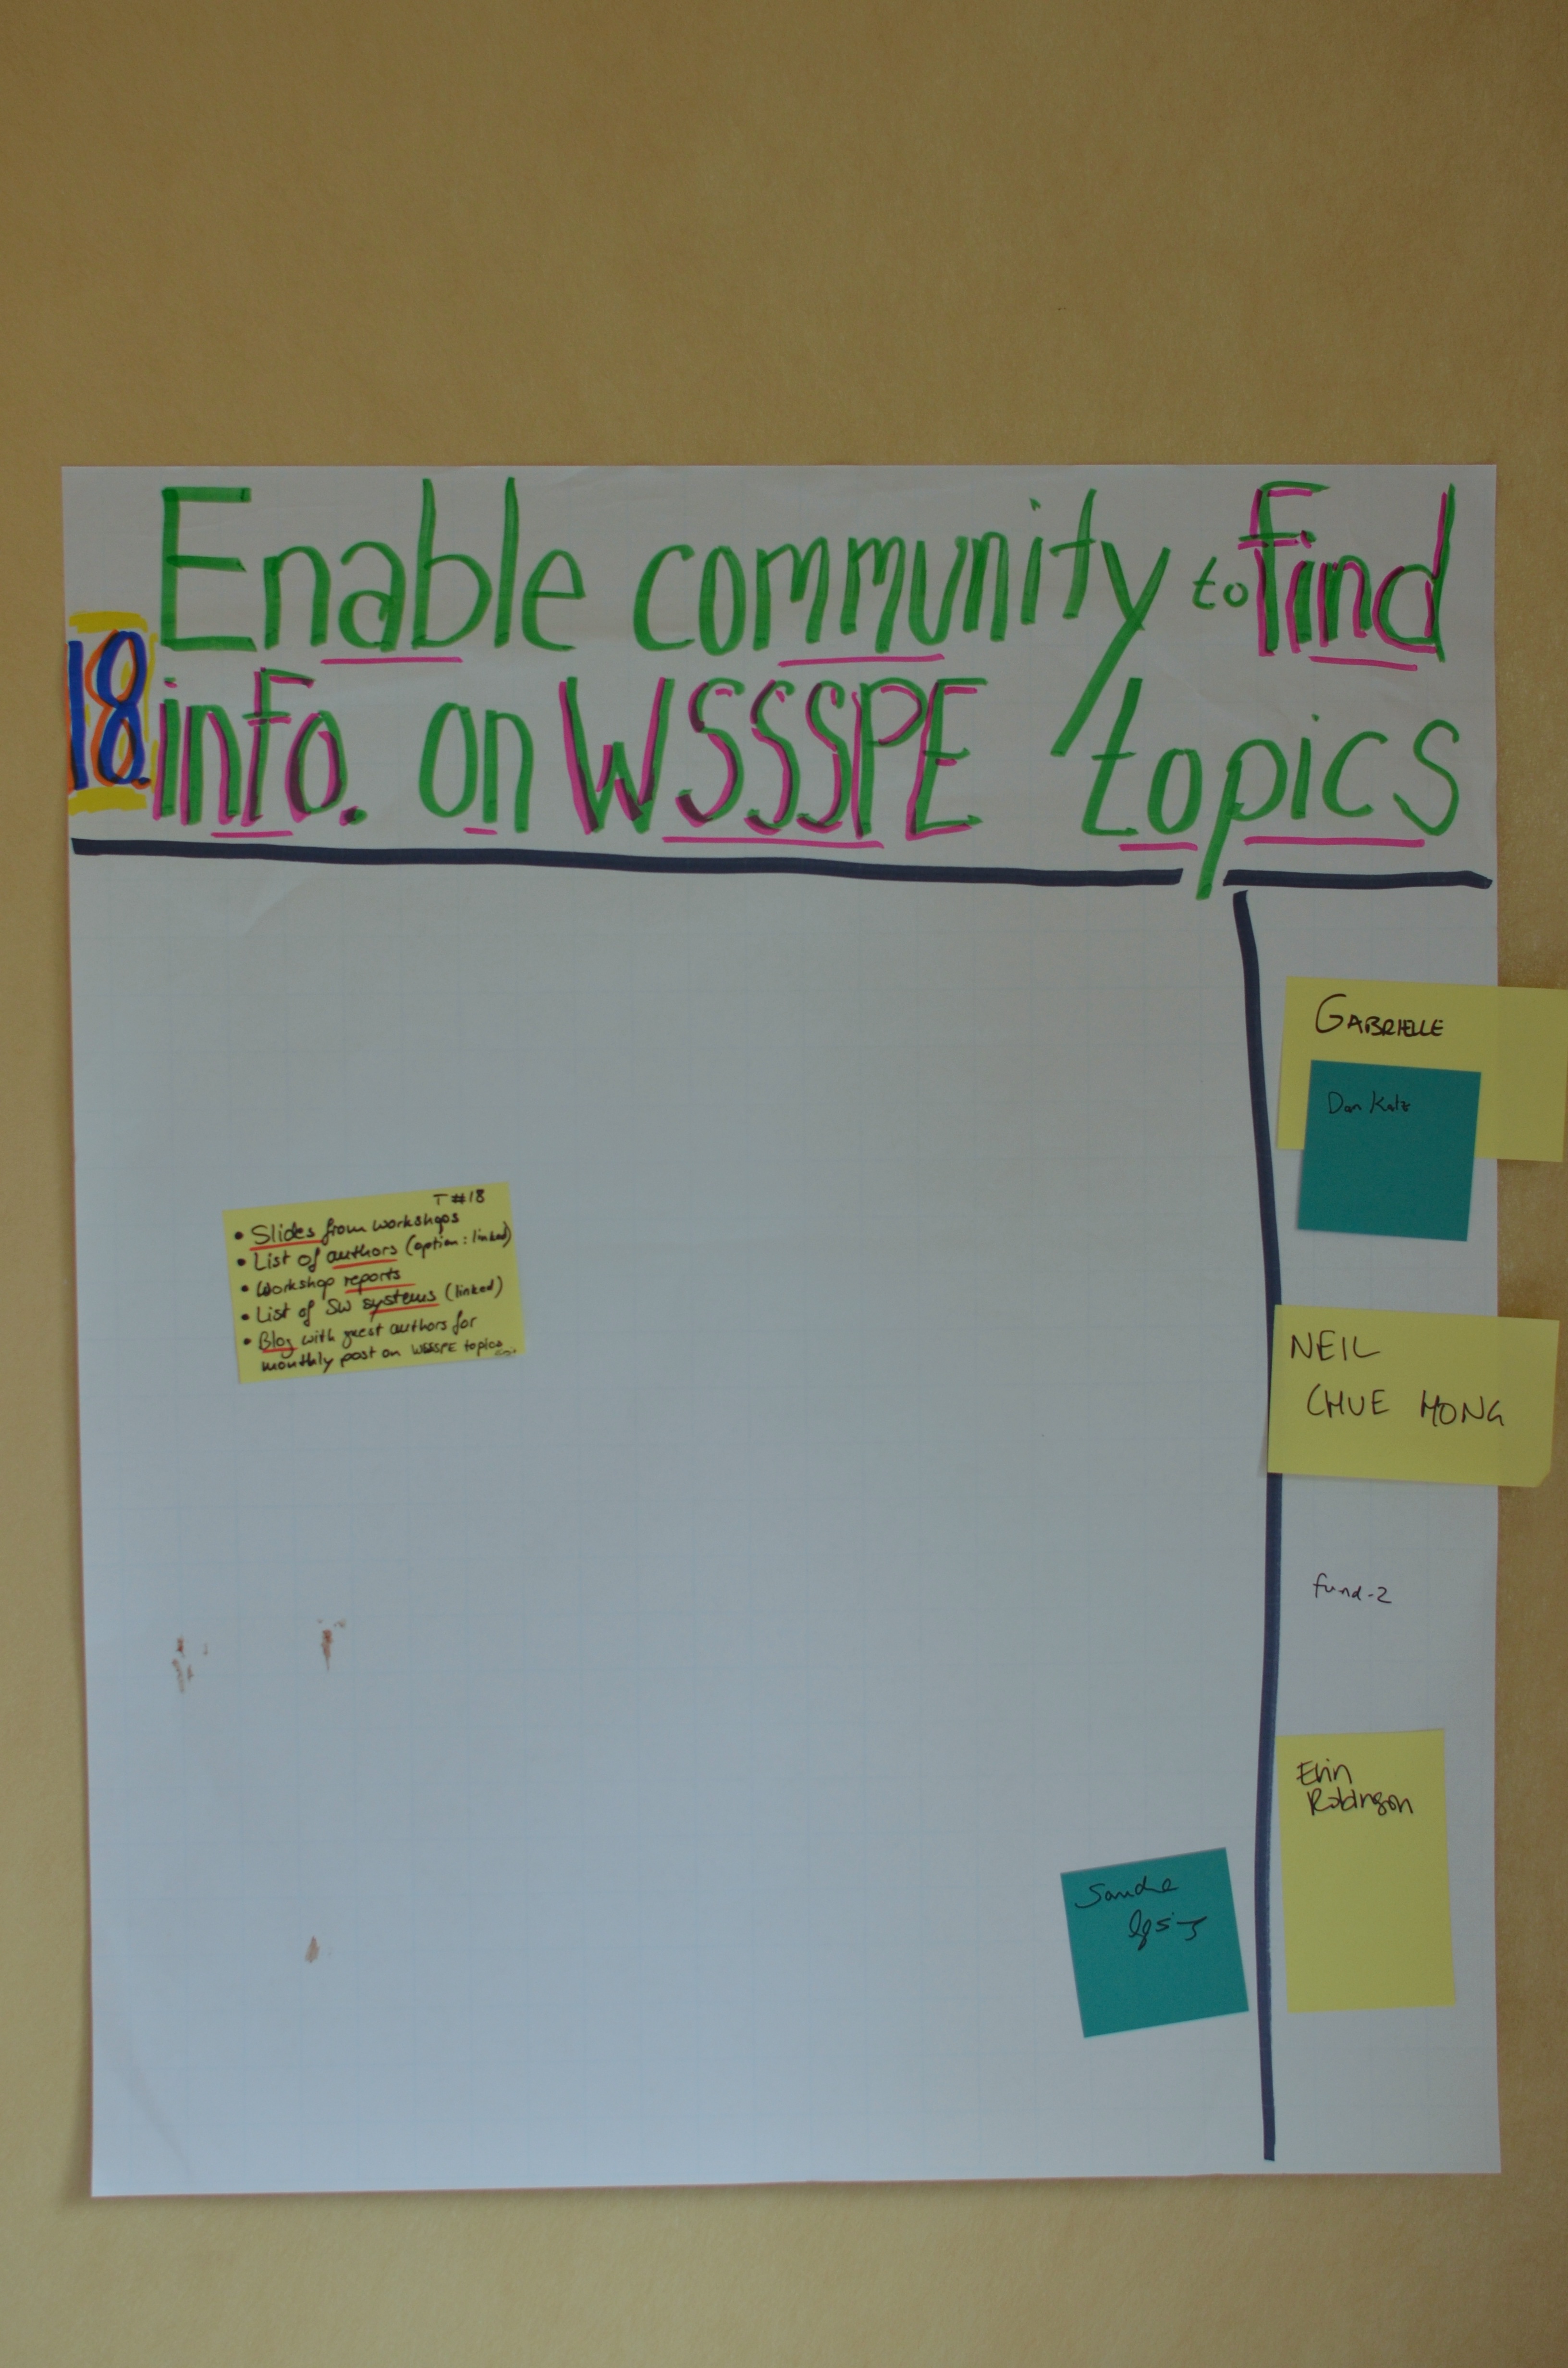 Enable community to find
18. info. on WSSSPE topics
T #18
• Slides from workshops
• List of authors (option: linked)
• Workshop reports
• List of SW systems (linked)
• Blog with guest authors for
monthly post on WSSSPE topics
GABRIELLE
Dan Katz
NEIL
CHUE HONG
fund-2
Erin
Robinson
Sandra